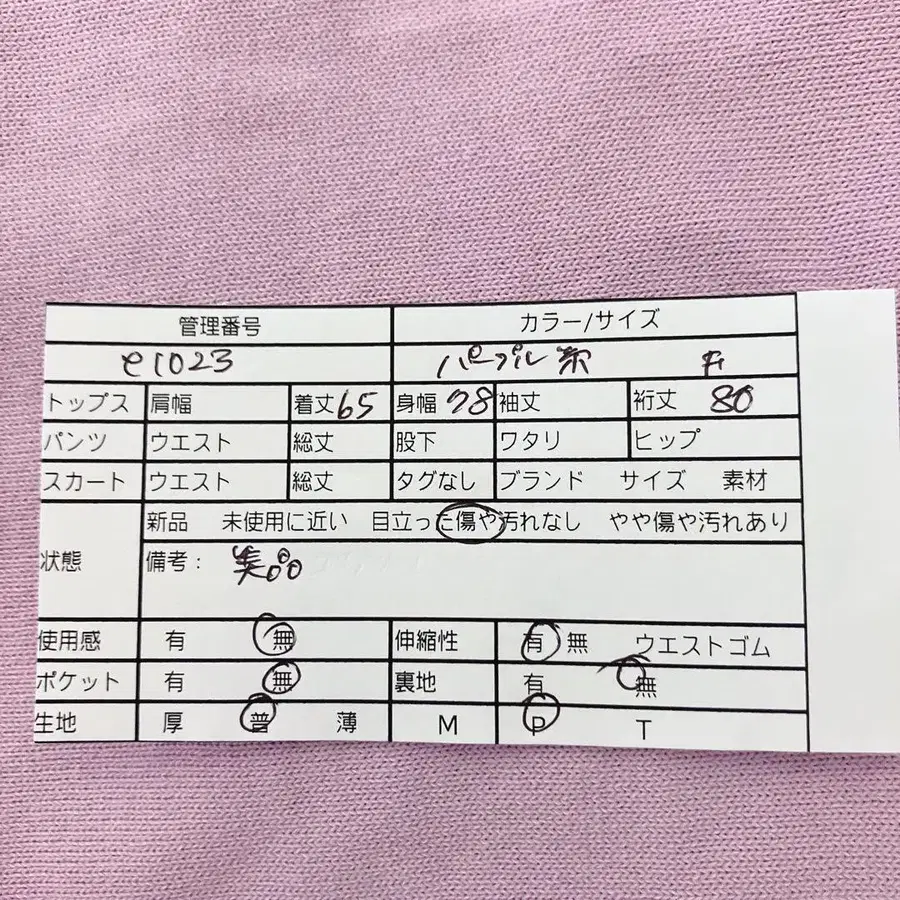 管理番号 カラー/サイズ
e1023 パープル系
トップス 肩幅 着丈65 身幅78 袖丈 裄丈 80
パンツ ウエスト 総丈 股下 ワタリ ヒップ
スカート ウエスト 総丈 タグなし ブランド サイズ 素材
状態 新品 未使用に近い 目立った傷や汚れなし やや傷や汚れあり
備考: 美品
使用感 有 無 伸縮性 有 無 ウエストゴム
ポケット 有 無 裏地 有 無
生地 厚 普 薄 M P T